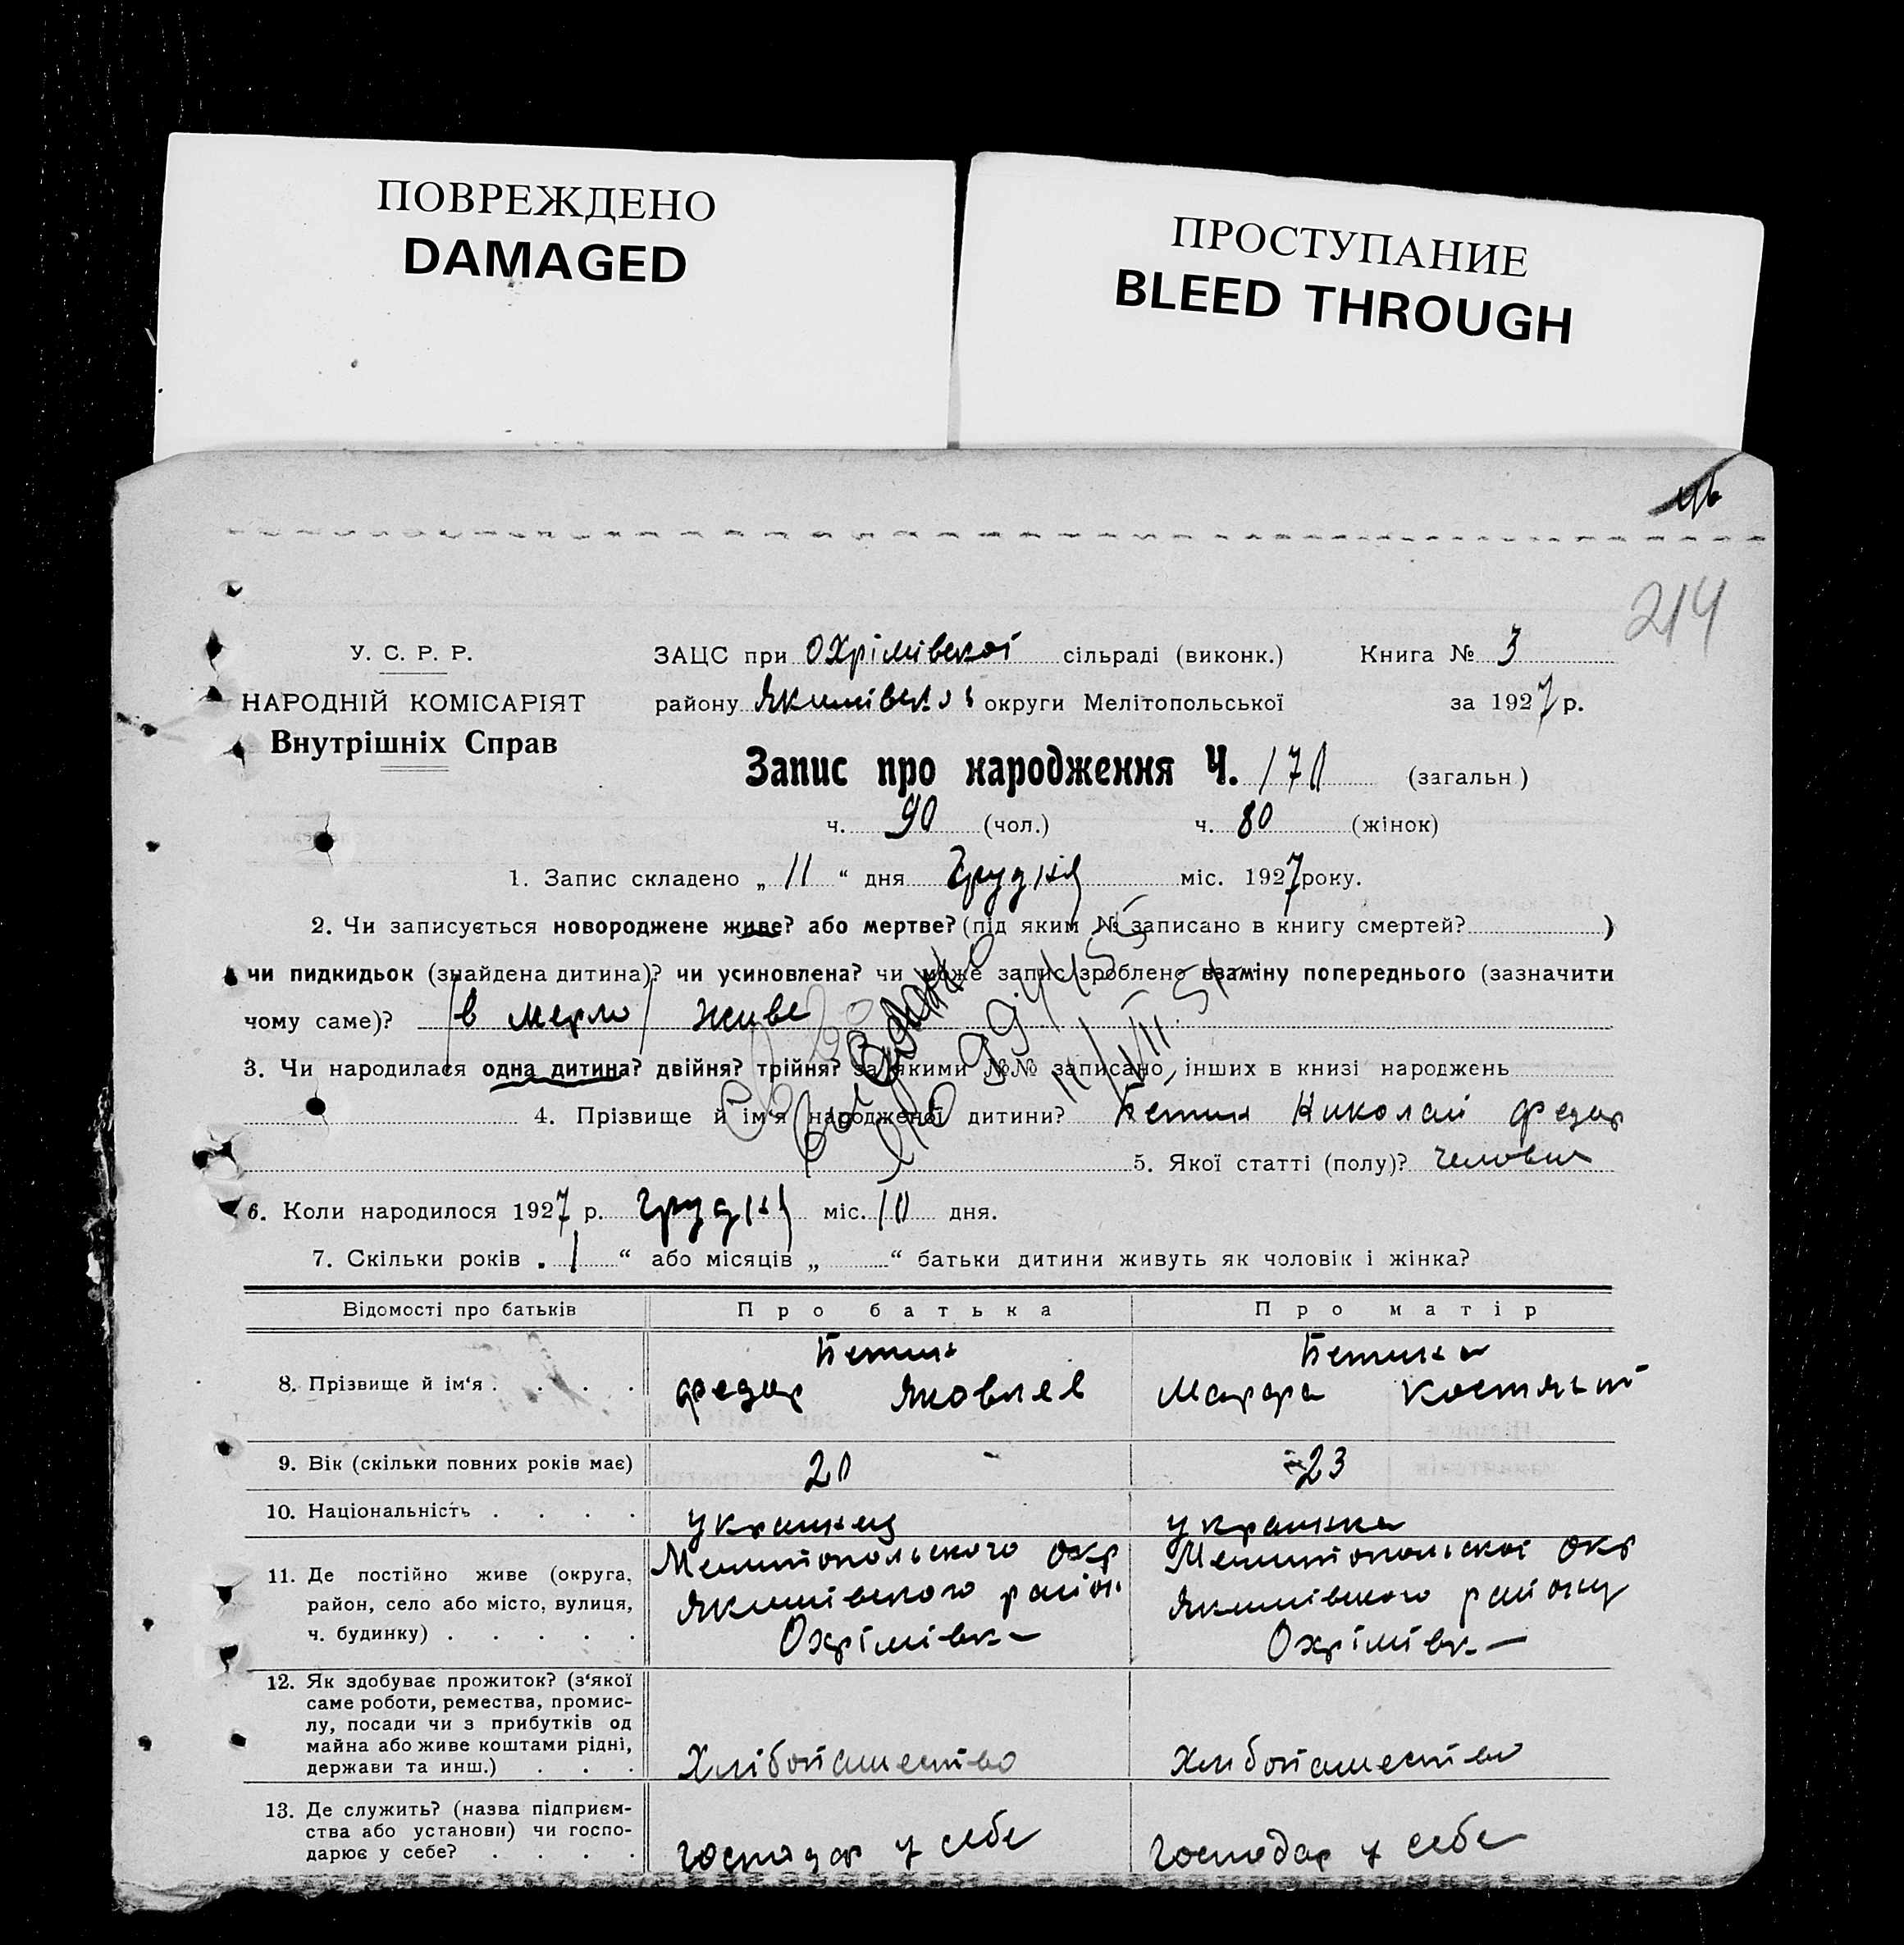 ПОВРЕЖДЕНО
DAMAGED
ПРОСТУПАНИЕ
BLEED THROUGH
214
У. С. Р. Р.
НАРОДНІЙ КОМІСАРІЯТ
Внутрішніх Справ
ЗАЦС при Охрімівској сільраді (виконк.)
Книга № 3
району Якимівскої округи Мелітопольської
за 1927 р.
Запис про народження Ч. 170 (загальн)
ч. 90 (чол.) ч. 80 (жінок)
1. Запис складено „ 11 “ дня Грудня міс. 1927 року.
2. Чи записується новороджене живе? або мертве? (під яким № записано в книгу смертей? )
чи пидкидьок (знайдена дитина)? чи усиновлена? чи може запис зроблено взаміну попереднього (зазначити
чому саме)? живе
3. Чи народилася одна дитина? двійня? трійня? за якими №№ записано інших в книзі народжень
4. Прізвище й ім‘я народженої дитини? Бетин Николай Федор
5. Якої статті (полу)? человик
6. Коли народилося 1927 р. Грудня міс. 10 дня.
7. Скільки років „ 1 “ або місяців „ “ батьки дитини живуть як чоловік і жінка?
Відомості про батьків
Про батька
Про матір
8. Прізвище й ім‘я
Бетин
Федор Яковлев
Бетина
9. Вік (скільки повних років має)
20
23
10. Національність
украинец
украинка
11. Де постійно живе (округа,
район, село або місто, вулиця,
ч. будинку)
Мелитопольского окр
Якимівского район
Охрімівка
Мелитопольскої окр
Якимівского району
Охрімівка
12. Як здобуває прожиток? (з‘якої
саме роботи, ремества, промис-
лу, посади чи з прибутків од
майна або живе коштами рідні,
держави та инш.)
Хлібопашество
Хлибопашество
13. Де служить? (назва підприєм-
ства або установи) чи госпо-
дарює у себе?
господар у себе
господар у себе